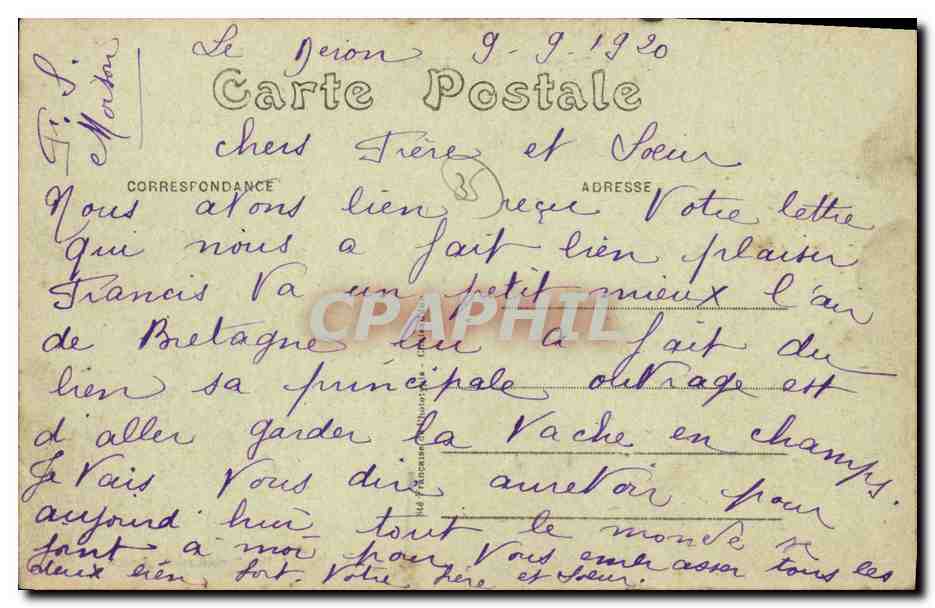 Le 9-9-1920
Carte Postale
F. S.
chers Frère et Soeur
CORRESPONDANCE ADRESSE
35
Nous avons bien reçu Votre lettre
qui nous a fait bien plaisir
Francis Va un petit mieux l'air
CPAPHIL
de Bretagne lui a fait du
bien sa principale ouvrage est
d aller garder la Vache en champs.
Je Vais Vous dire aurevoir pour
aujourd hui tout le monde se
joint à moi pour Vous embrasser tous les
deux bien fort. Votre frère et Soeur.